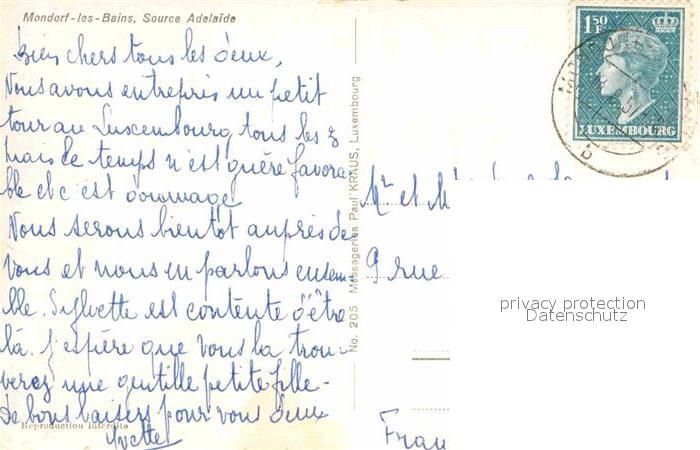 Mondorf-les-Bains, Source Adelaïde
Bien chers tous les deux,
Nous avons entrepris un petit
tour au Luxembourg tous les 3
mais le temps n'est guère favora
ble et c'est dommage
Nous serons bientôt auprès de
vous et nous en parlons ensem
ble. Sylvette est contente d'être
là. J'espère que vous la trou-
verez une gentille petite fille-
De bons baisers pour vous deux
Reproduction Interdite
Yvette
No. 205 Messageries Paul KRAUS, Luxembourg
1F50
LUXEMBOURG
Mr et M
9 rue
Fran
privacy protection
Datenschutz